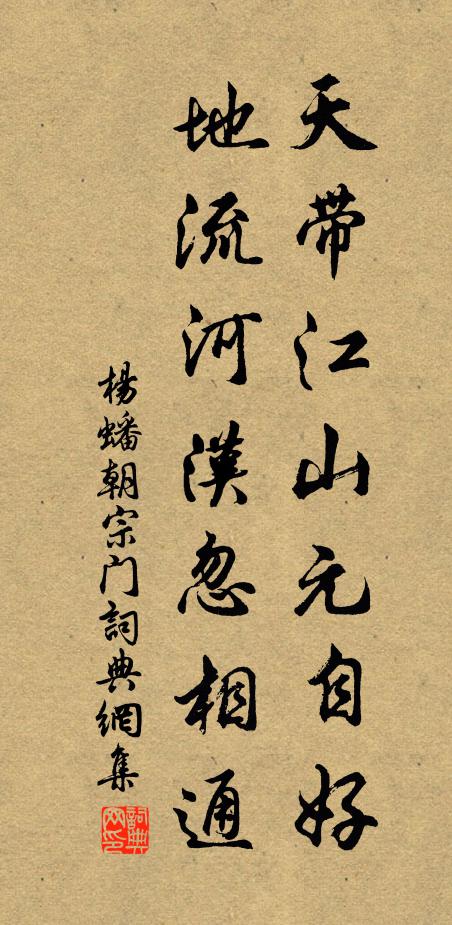 天带江山元自好
地流河漢忽相通
楊蟠朝宗门詞典網集
詞典
网印